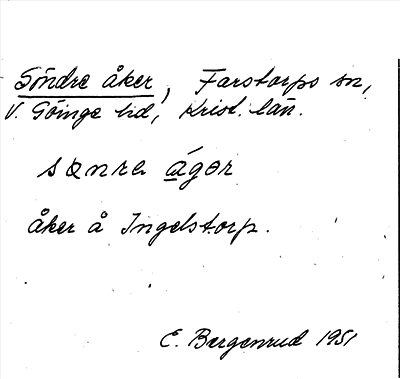 Söndre åker, Farstorps sn,
V. Göinge hd, Krist. län.
sønrə ågər
åker å Ingelstorp.
E. Bergenrud 1951